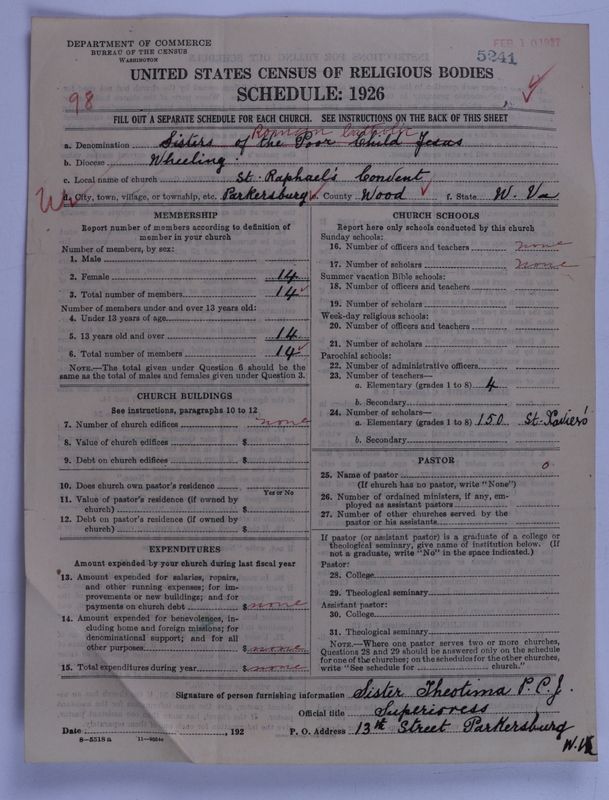 DEPARTMENT OF COMMERCE
BUREAU OF THE CENSUS
WASHINGTON
FEB 10 1927
5241
UNITED STATES CENSUS OF RELIGIOUS BODIES
SCHEDULE: 1926
98
FILL OUT A SEPARATE SCHEDULE FOR EACH CHURCH. SEE INSTRUCTIONS ON THE BACK OF THIS SHEET
Roman Catholic
a. Denomination Sisters of the Poor Child Jesus
b. Diocese Wheeling.
c. Local name of church St. Raphael's Convent
d. City, town, village, or township, etc. Parkersburg e. County Wood f. State W. Va
MEMBERSHIP
Report number of members according to definition of
member in your church
Number of members, by sex:
1. Male
2. Female 14
3. Total number of members 14
Number of members under and over 13 years old:
4. Under 13 years of age
5. 13 years old and over 14
6. Total number of members 14
NOTE.—The total given under Question 6 should be the
same as the total of males and females given under Question 3.
CHURCH BUILDINGS
See instructions, paragraphs 10 to 12
7. Number of church edifices none
8. Value of church edifices $
9. Debt on church edifices $
10. Does church own pastor's residence
Yes or No
11. Value of pastor's residence (if owned by
church) $
12. Debt on pastor's residence (if owned by
church) $
EXPENDITURES
Amount expended by your church during last fiscal year
13. Amount expended for salaries, repairs,
and other running expenses; for im-
provements or new buildings; and for
payments on church debt $ none
14. Amount expended for benevolences, in-
cluding home and foreign missions; for
denominational support; and for all
other purposes $ none
15. Total expenditures during year $ none
CHURCH SCHOOLS
Report here only schools conducted by this church
Sunday schools:
16. Number of officers and teachers none
17. Number of scholars none
Summer vacation Bible schools:
18. Number of officers and teachers
19. Number of scholars
Week-day religious schools:
20. Number of officers and teachers
21. Number of scholars
Parochial schools:
22. Number of administrative officers
23. Number of teachers—
a. Elementary (grades 1 to 8) 4
b. Secondary
24. Number of scholars—
a. Elementary (grades 1 to 8) 150 St. Xavier's
b. Secondary
PASTOR
25. Name of pastor 0
(If church has no pastor, write "None")
26. Number of ordained ministers, if any, em-
ployed as assistant pastors
27. Number of other churches served by the
pastor or his assistants
If pastor (or assistant pastor) is a graduate of a college or
theological seminary, give name of institution below. (If
not a graduate, write "No" in the space indicated.)
Pastor:
28. College
29. Theological seminary
Assistant pastor:
30. College
31. Theological seminary
NOTE.—Where one pastor serves two or more churches,
Questions 28 and 29 should be answered only on the schedule
for one of the churches; on the schedules for the other churches,
write "See schedule for church."
Signature of person furnishing information Sister Theotima P.C.J.
Official title Superioress
Date , 192 P. O. Address 13th Street Parkersburg
W. Va
8—5318a